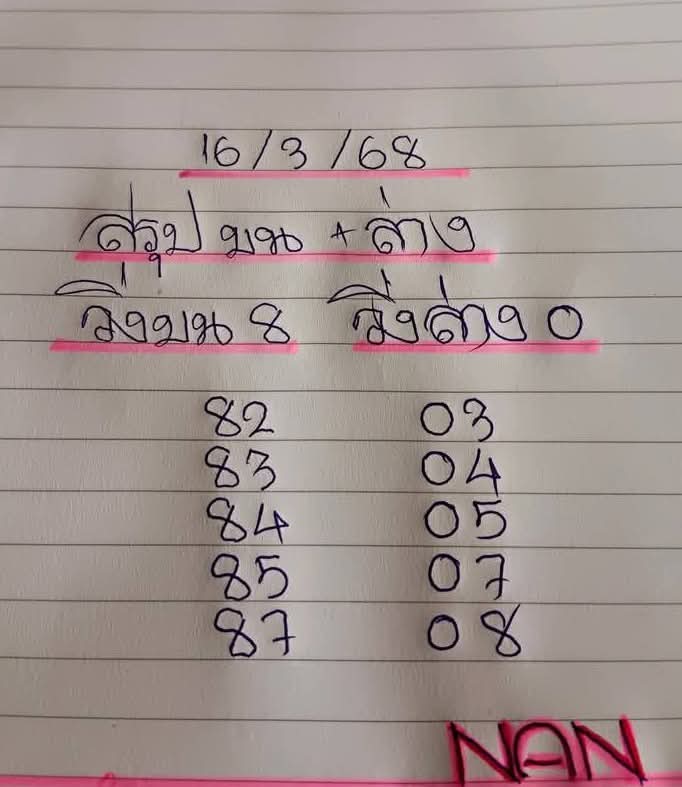 16/3/68
สรุป บน + ล่าง
วิ่งบน 8 วิ่งล่าง 0
82 03
83 04
84 05
85 07
87 08
NAN